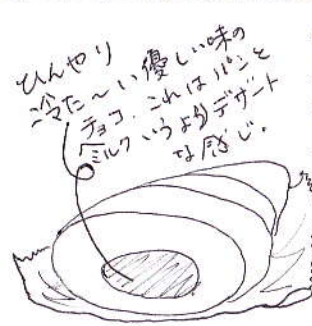 ひんやり
冷た〜い優しい味の
チョコ、これはパンと
ミルクいうよりデザート
な感じ。